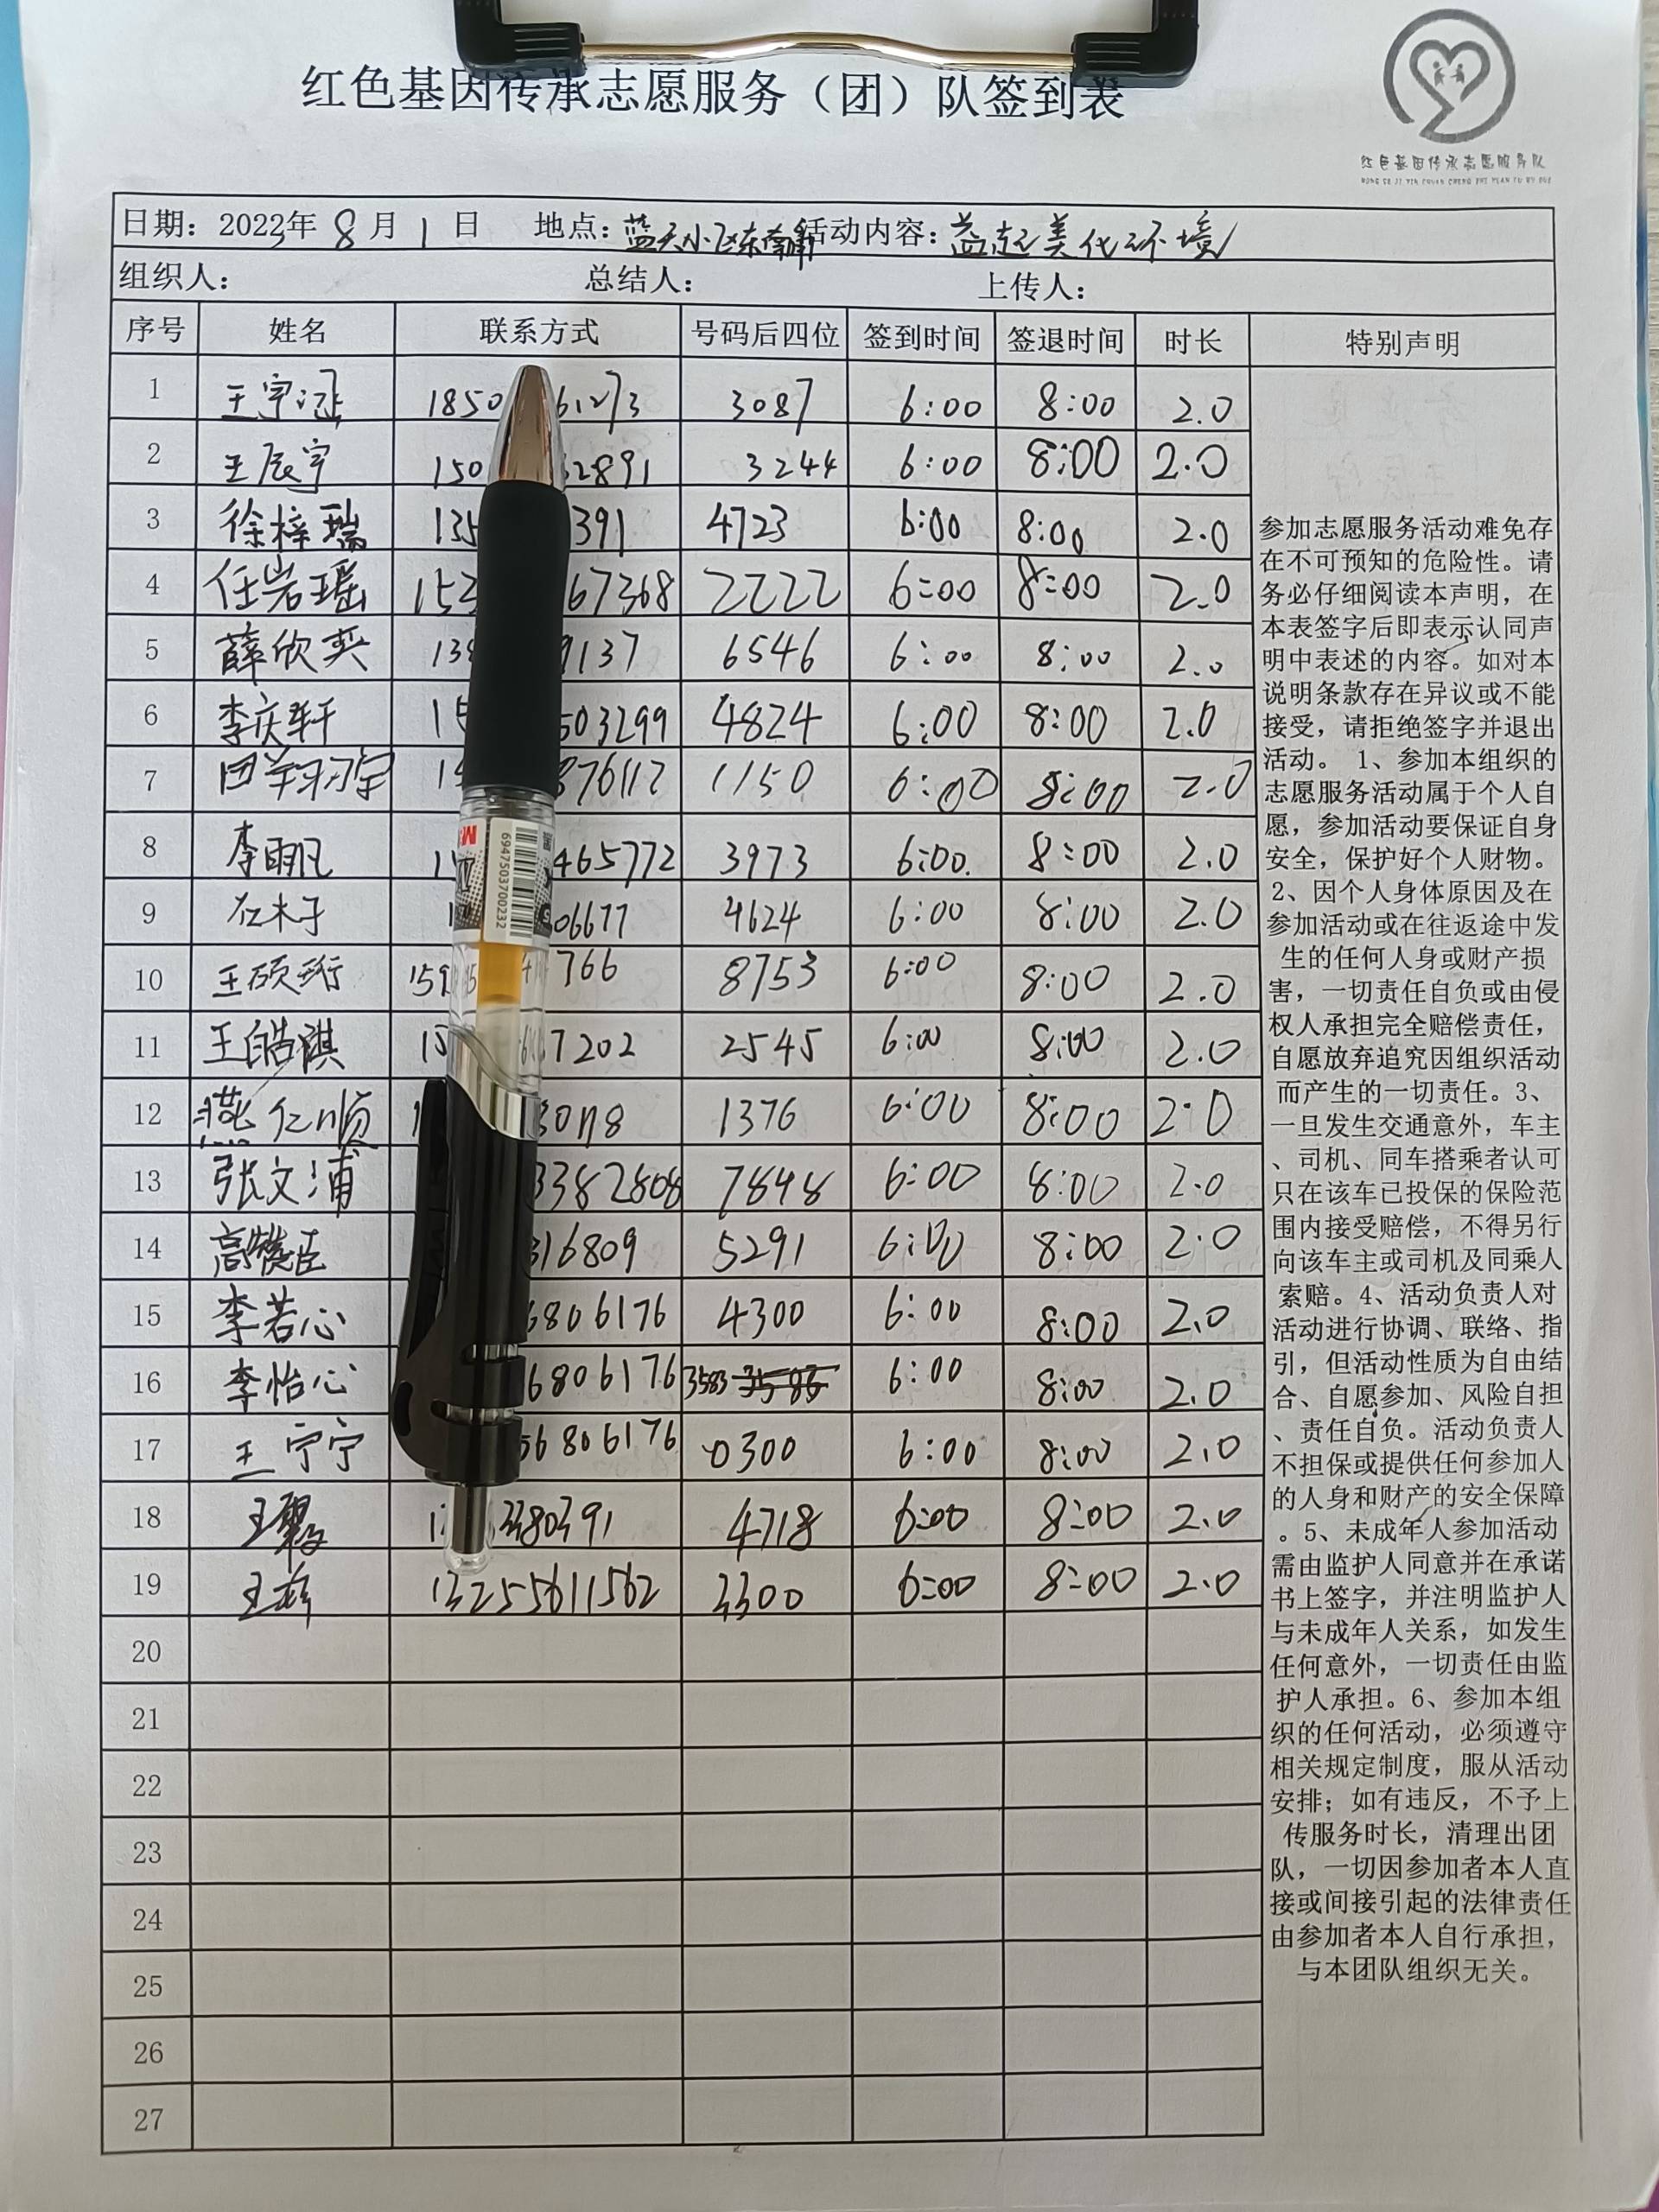 红色基因传承志愿服务（团）队签到表
红色基因传承志愿服务队
日期：2023年 8 月 1 日 地点：蓝天小区东南 活动内容：益起美化环境
组织人： 总结人： 上传人：
序号 姓名 联系方式 号码后四位 签到时间 签退时间 时长 特别声明
1 王宇 1850 61273 3087 6:00 8:00 2.0
2 王辰宇 150 2891 3244 6:00 8:00 2.0
3 徐梓瑞 135 391 4723 6:00 8:00 2.0
4 任岩瑶 153 67368 2222 6:00 8:00 2.0
5 薛欣奕 138 9137 6546 6:00 8:00 2.0
6 李庆轩 15 503299 4824 6:00 8:00 2.0
7 田 宇 876112 1150 6:00 8:00 2.0
8 李 465772 3973 6:00 8:00 2.0
9 木子 06677 4624 6:00 8:00 2.0
10 王硕珩 159 766 8753 6:00 8:00 2.0
11 王皓淇 15 7202 2545 6:00 8:00 2.0
12 仁顺 1376 6:00 8:00 2.0
13 张文浦 3382808 7848 6:00 8:00 2.0
14 高 臣 316809 5291 6:00 8:00 2.0
15 李若心 6806176 4300 6:00 8:00 2.0
16 李怡心 6806176 3583 3583 6:00 8:00 2.0
17 王宁宁 56806176 0300 6:00 8:00 2.0
18 王 3380391 4718 6:00 8:00 2.0
19 王 13255611562 3300 6:00 8:00 2.0
20
21
22
23
24
25
26
27
参加志愿服务活动难免存
在不可预知的危险性。请
务必仔细阅读本声明，在
本表签字后即表示认同声
明中表述的内容。如对本
说明条款存在异议或不能
接受，请拒绝签字并退出
活动。 1、参加本组织的
志愿服务活动属于个人自
愿，参加活动要保证自身
安全，保护好个人财物。
2、因个人身体原因及在
参加活动或在往返途中发
生的任何人身或财产损
害，一切责任自负或由侵
权人承担完全赔偿责任，
自愿放弃追究因组织活动
而产生的一切责任。3、
一旦发生交通意外，车主
、司机、同车搭乘者认可
只在该车已投保的保险范
围内接受赔偿，不得另行
向该车主或司机及同乘人
索赔。4、活动负责人对
活动进行协调、联络、指
引，但活动性质为自由结
合、自愿参加、风险自担
、责任自负。活动负责人
不担保或提供任何参加人
的人身和财产的安全保障
。5、未成年人参加活动
需由监护人同意并在承诺
书上签字，并注明监护人
与未成年人关系，如发生
任何意外，一切责任由监
护人承担。6、参加本组
织的任何活动，必须遵守
相关规定制度，服从活动
安排；如有违反，不予上
传服务时长，清理出团
队，一切因参加者本人直
接或间接引起的法律责任
由参加者本人自行承担，
与本团队组织无关。
6947503700232